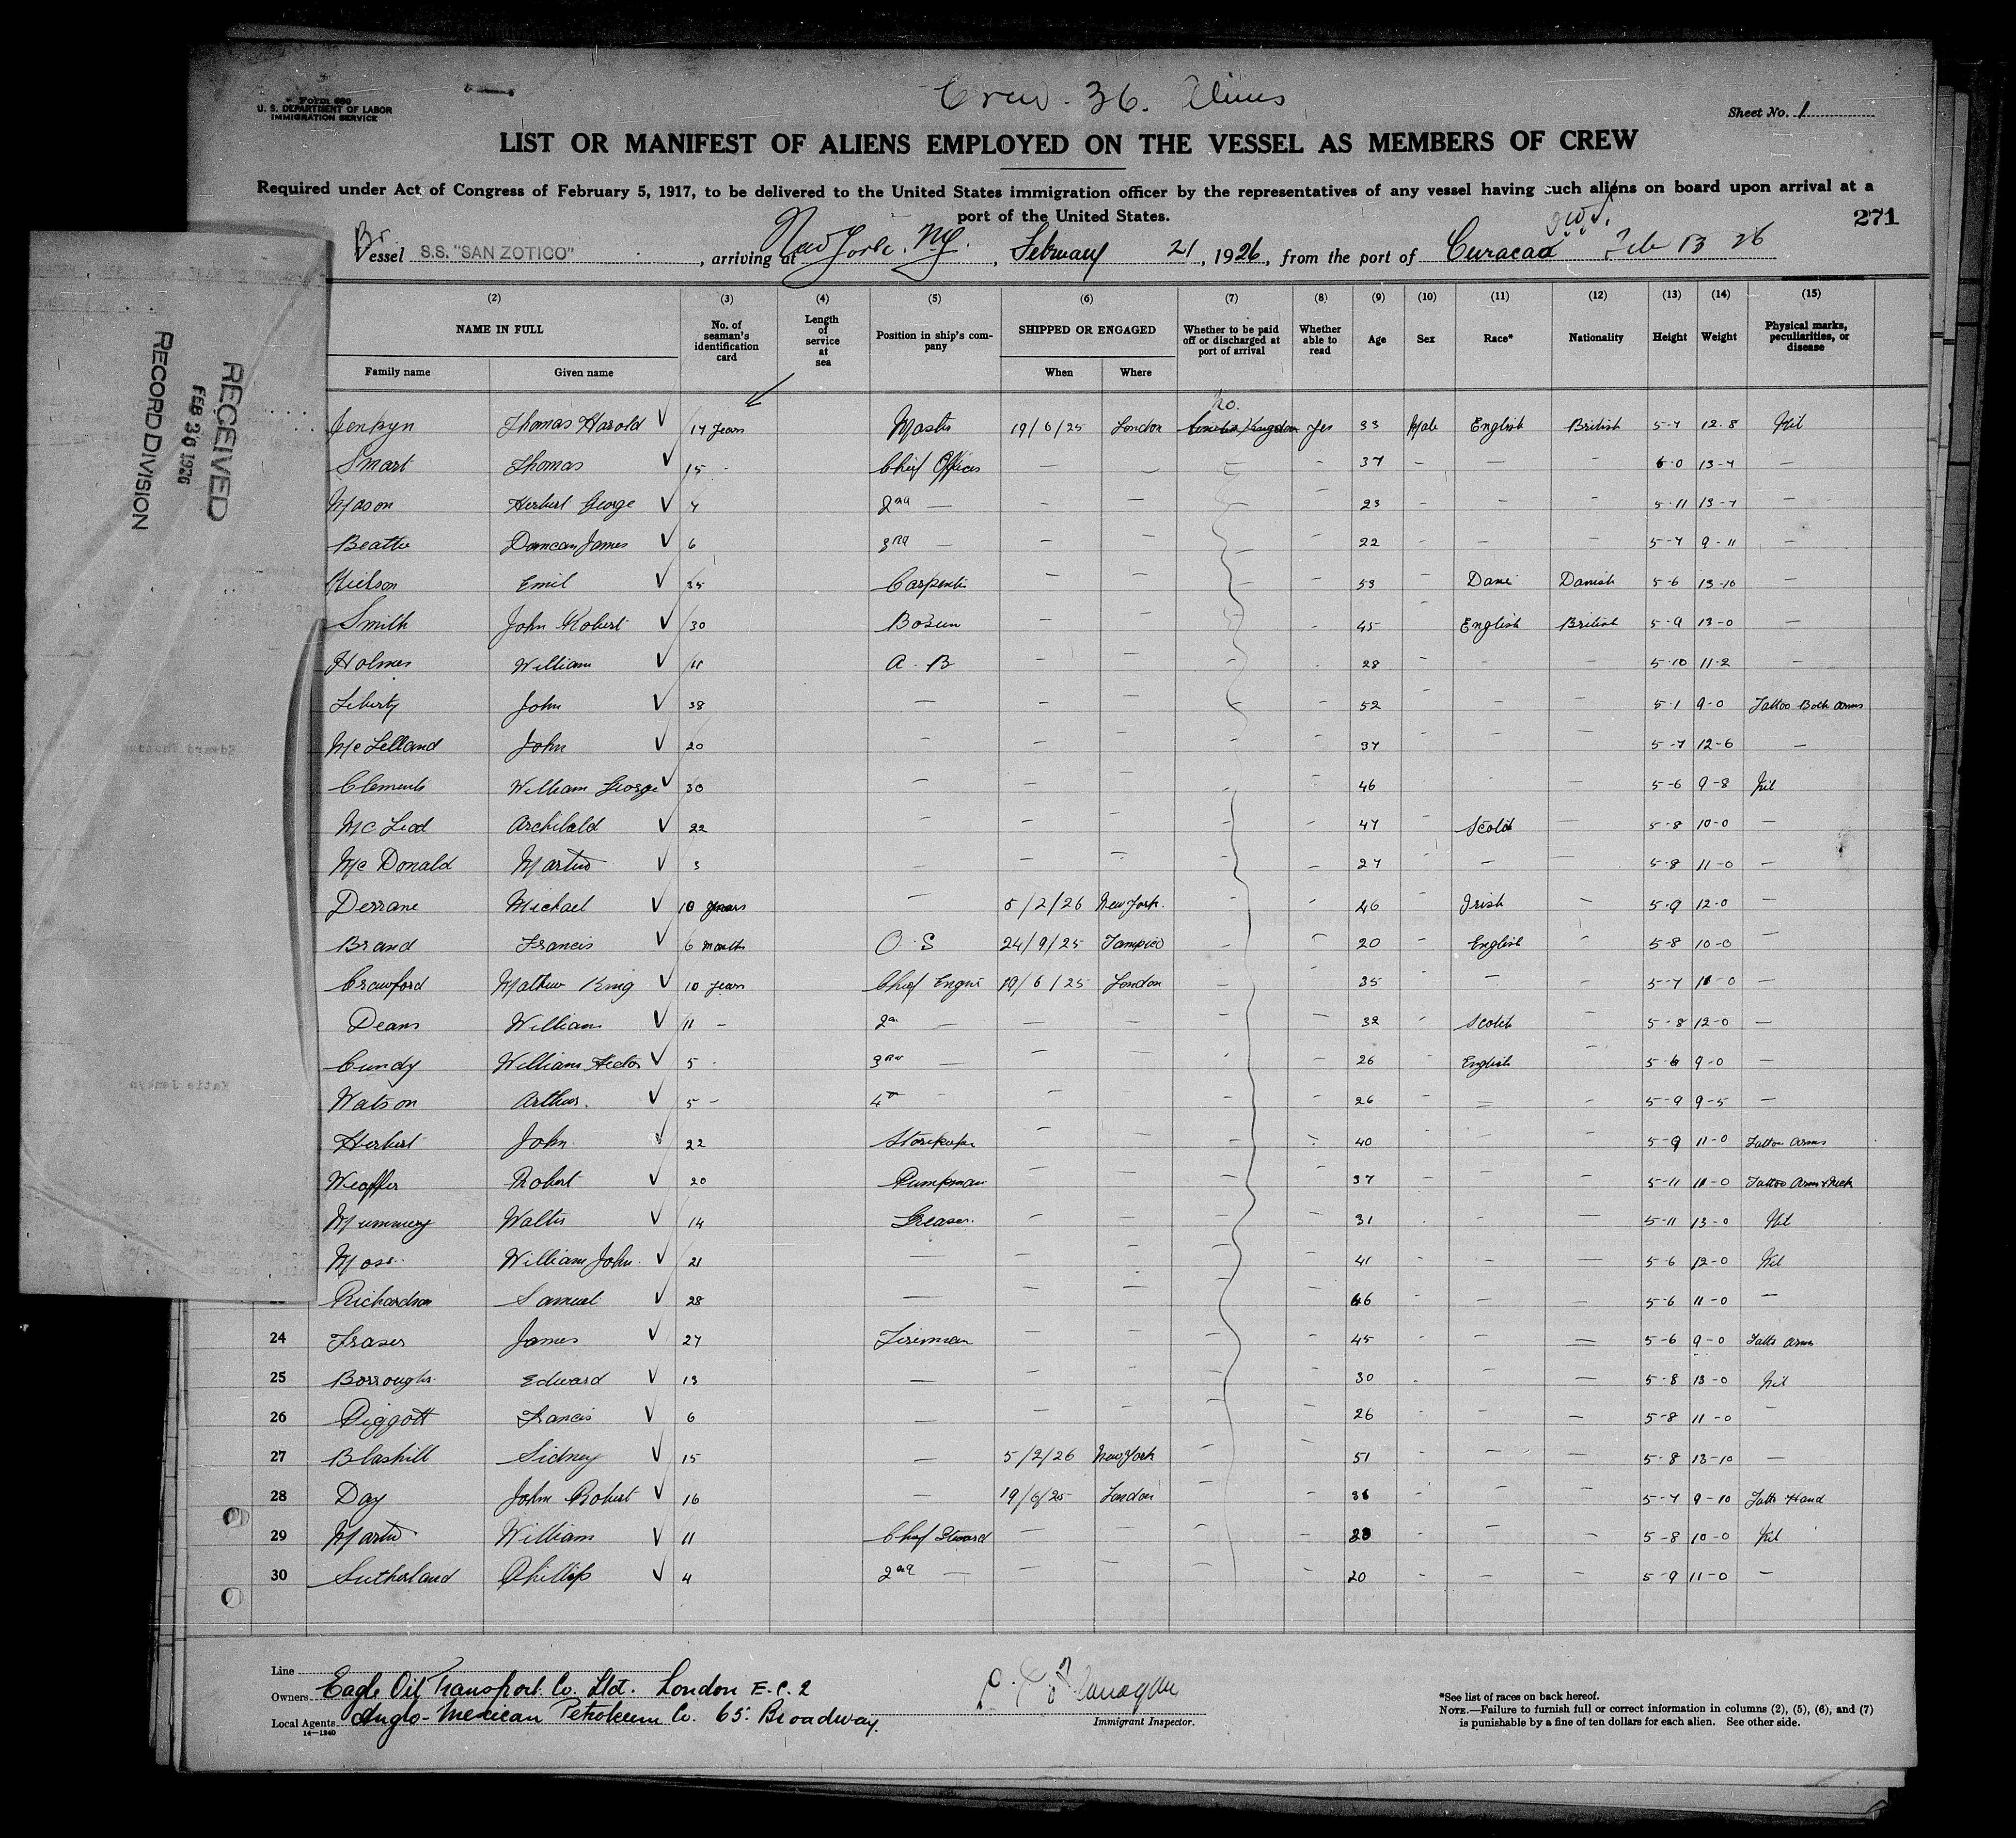 Crew. 36. Aliens
Form 680
U. S. DEPARTMENT OF LABOR
IMMIGRATION SERVICE
Sheet No. 1
LIST OR MANIFEST OF ALIENS EMPLOYED ON THE VESSEL AS MEMBERS OF CREW
Required under Act of Congress of February 5, 1917, to be delivered to the United States immigration officer by the representatives of any vessel having such aliens on board upon arrival at a
port of the United States.
271
Br
Vessel S.S. "SAN ZOTICO", arriving at New York. N.Y., February 21, 1926, from the port of Curacao Feb 13 26
RECEIVED
FEB 30 1926
RECORD DIVISION
(2) (3) (4) (5) (6) (7) (8) (9) (10) (11) (12) (13) (14) (15)
NAME IN FULL
Family name Given name
No. of seaman's identification card
Length of service at sea
Position in ship's company
SHIPPED OR ENGAGED
When Where
Whether to be paid off or discharged at port of arrival
Whether able to read
Age
Sex
Race*
Nationality
Height
Weight
Physical marks, peculiarities, or disease
no.
Jenkyn Thomas Harold 14 years Master 19/6/25 London United Kingdom yes 33 Male English British 5-7 12-8 Nil
Smart Thomas 15 - Chief Officer — — — - 37 - — - 6-0 13-7 —
Mason Herbert George 4 2nd — - — - - 23 - - - 5-11 13-7 -
Beattie Duncan James 6 3rd — - — — - 22 - - - 5-7 9-11 —
Nielson Emil 35 Carpenter — — — - 53 - Dane Danish 5-6 13-10 —
Smith John Robert 30 Bosun — — - - 45 - English British 5-9 13-0 —
Holmes William 11 A. B — — - - 28 - - - 5-10 11-2 -
Liberty John 38 — — — - - 52 - - - 5-1 9-0 Tattoo Both arms
McLelland John 20 - - — - - 37 - - 5-7 12-6 —
Clements William George 30 — — - - - 46 - — 5-6 9-8 Nil
McLeod Archibald 22 — — — - - 47 - Scotch — 5-8 10-0 —
McDonald Martin 3 — — — - - 27 - — — 5-8 11-0 —
Derrane Michael 10 years — 5/2/26 New York. - - 26 - Irish - 5-9 12-0 —
Brand Francis 6 months O. S 24/9/25 Tampico - - 20 - English - 5-8 10-0 —
Crawford Mathew King 10 years Chief Engnr 19/6/25 London - - 35 - — - 5-7 11-0 —
Deans William 11 - 2nd — — — - - 32 - Scotch - 5-8 12-0 —
Cundy William Hector 5 - 3rd — — — - - 26 - English - 5-6 9-0 —
Watson Arthur. 5 - 4th - — — - - 26 - — - 5-9 9-5 —
Herbert John 22 Storekeeper — — - - 40 - — - 5-9 11-0 Tattoo arms
Robert 20 Pumpman — — - - 37 - — - 5-11 11-0 Tattoo Arms & Neck
Mummery Walter 14 Greaser. — - - - 31 - - - 5-11 13-0 Nil
Moss William John. 21 — — - - - 41 - — — 5-6 12-0 Nil
Richardson Samuel 28 — — — - - 46 - — — 5-6 11-0 —
24 Fraser James 27 Fireman — — - - 45 - — — 5-6 9-0 Tatto Arms
25 Borroughs. Edward 13 — — — - - 30 - - — 5-8 13-0 Nil
26 Piggott Francis 6 — — — - - 26 - - — 5-8 11-0 -
27 Blashill Sidney 15 — 5/2/26 New York - - 51 - - — 5-8 13-10 —
28 Day John Robert 16 — 19/6/25 London - - 36 - - — 5-7 9-10 Tatto Hand
29 Martin William 11 Chief Steward — — — - 28 - - - 5-8 10-0 Nil
30 Sutherland Phillip 4 2nd — — — — - 20 - — - 5-9 11-0 —
Line
Owners Eagle Oil Transport. Co. Ltd. London E.C.2
Local Agents Anglo-Mexican Petroleum Co. 65 Broadway.
14—1240
Immigrant Inspector.
*See list of races on back hereof.
NOTE.—Failure to furnish full or correct information in columns (2), (5), (6), and (7)
is punishable by a fine of ten dollars for each alien. See other side.